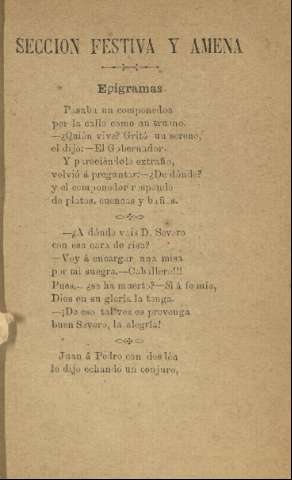 SECCION FESTIVA Y AMENA
Epigramas
Pasaba un componedor
por la calle como un trueno.
—¿Quién vive? Gritó un sereno,
el dijo:—El Gobernador.
Y pareciéndole extraño,
volvió á preguntar:—¿De dónde?
y el componedor responde
de platos, cuencas y baños.
—¿A dónde vais D. Severo
con esa cara de risa?
—Voy á encargar una misa
por mi suegra.—Caballero!!!
Pues... ¿se ha muerto?—Sí á fe mía,
Dios en su gloria la tenga.
—¡De eso tal vez os provenga
buen Severo, la alegría!
Juan á Pedro con desdén
le dijo echando un conjuro,